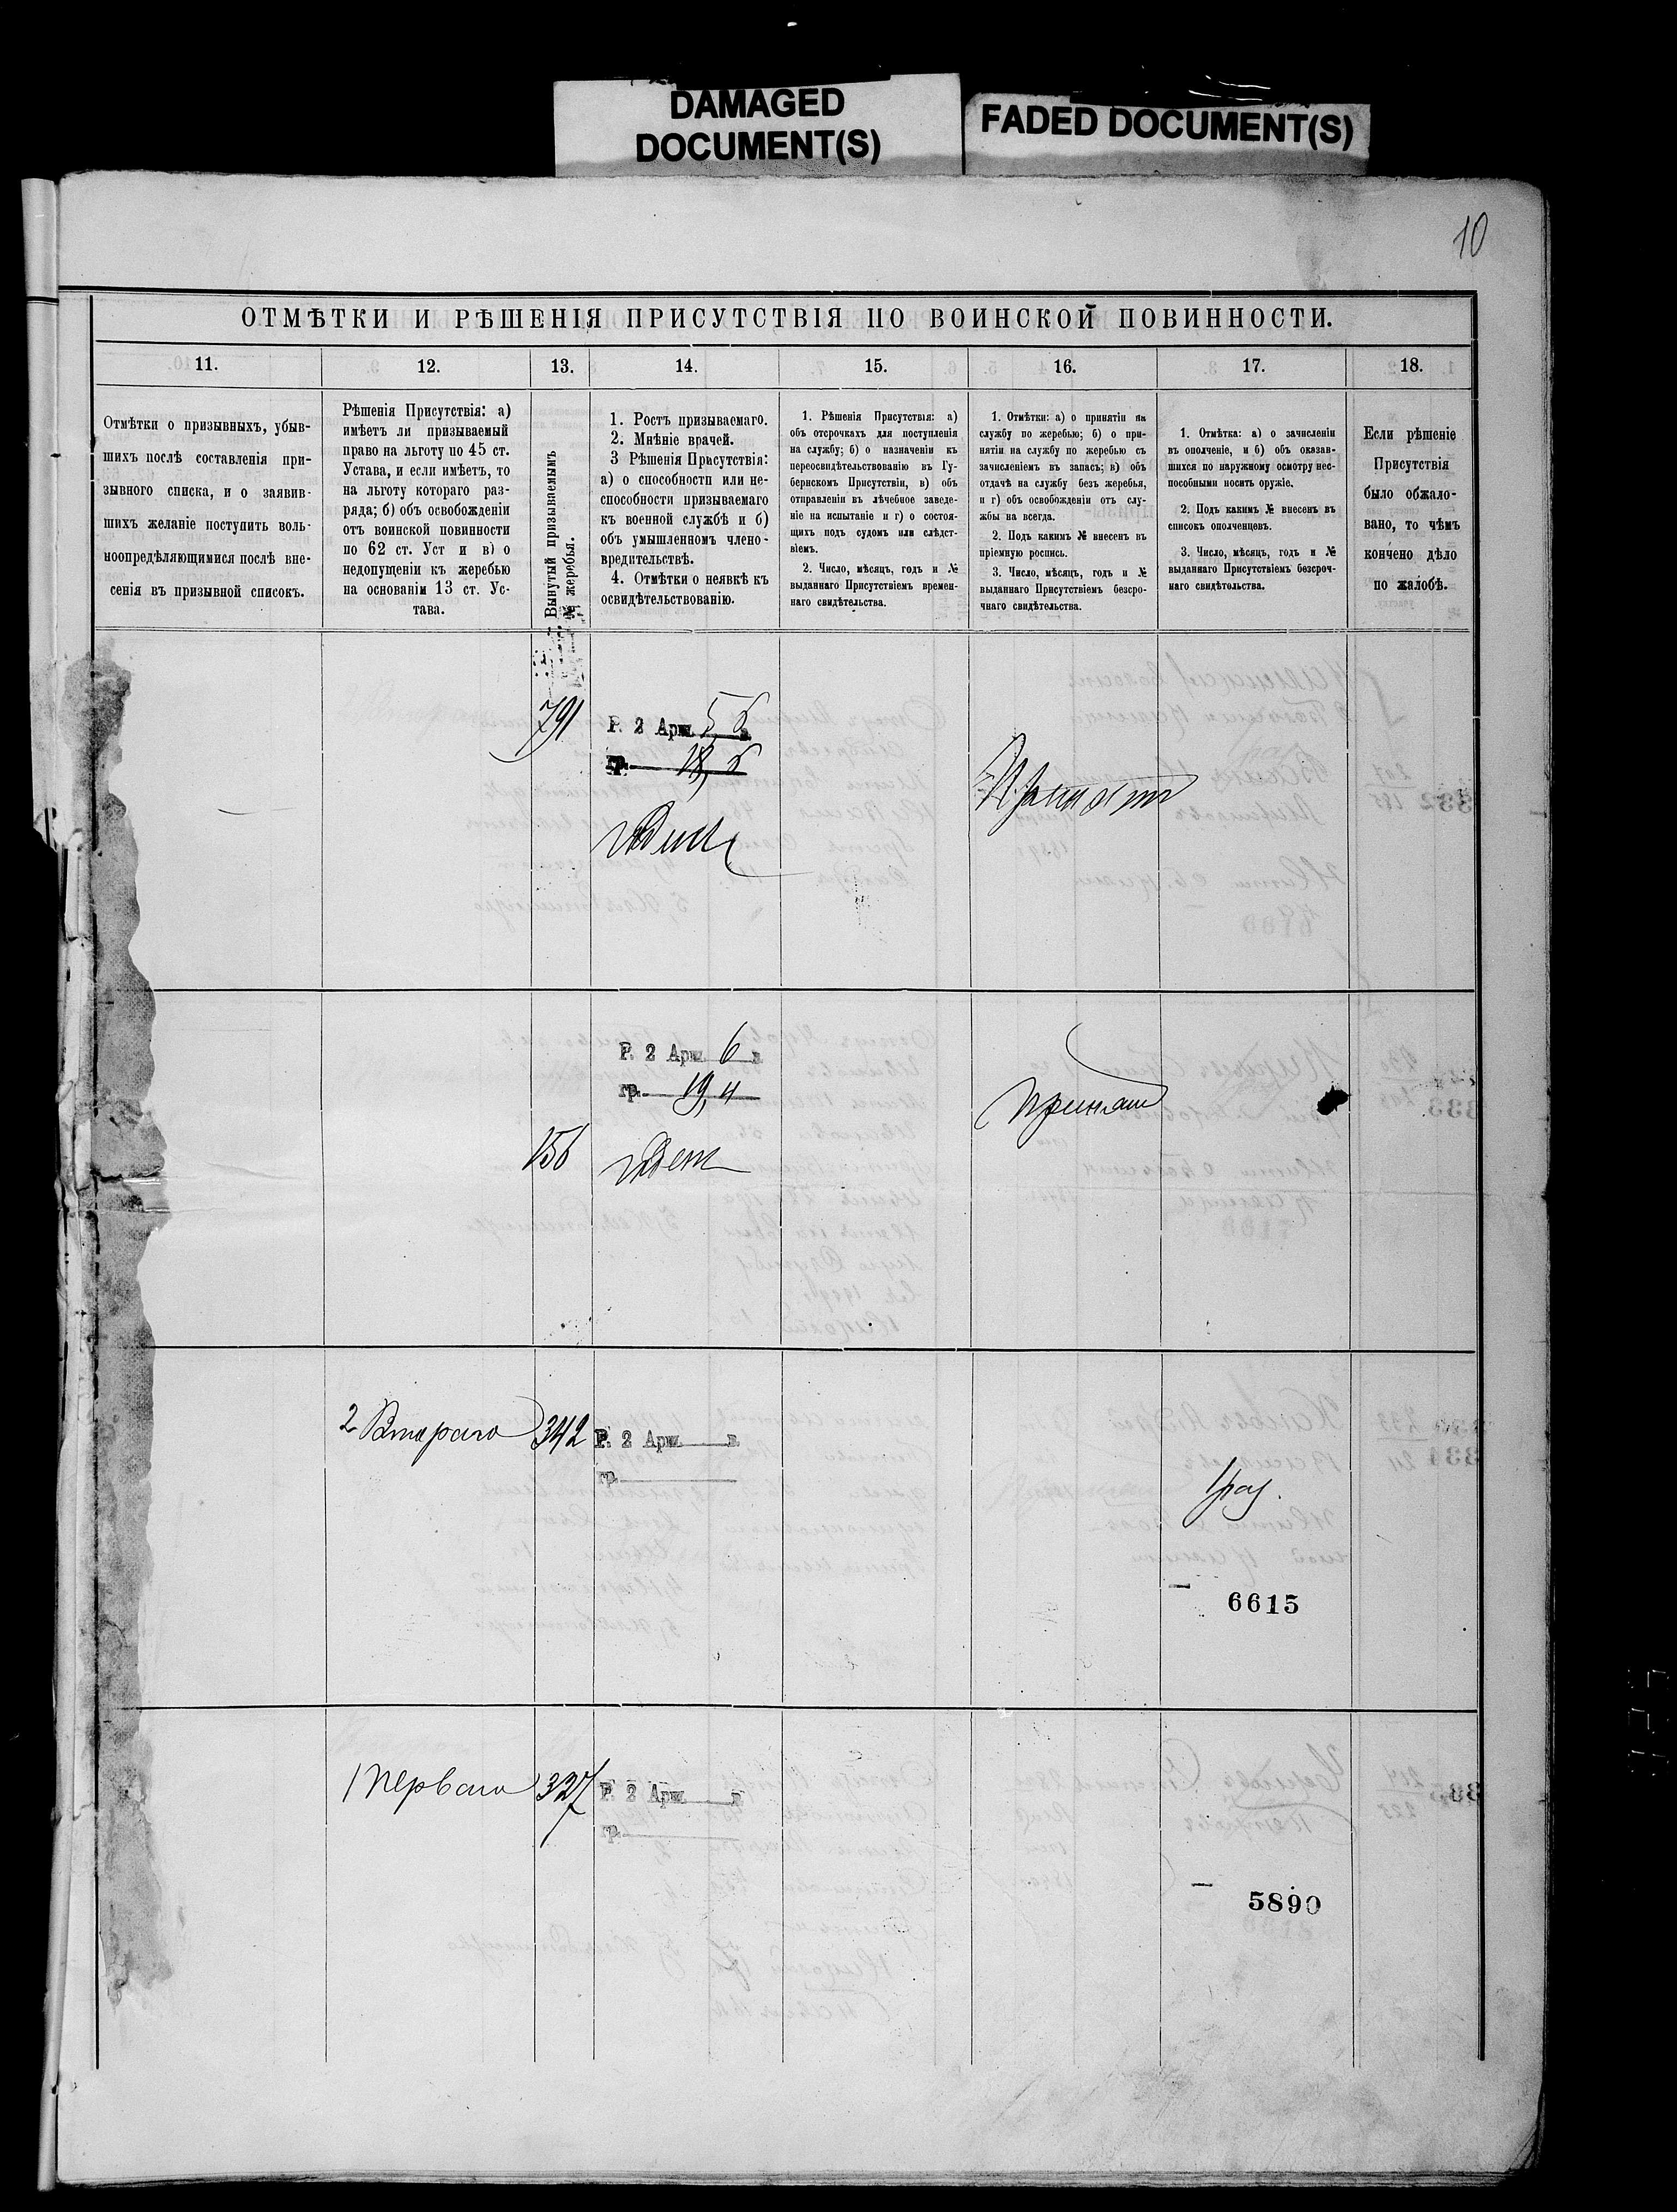 DAMAGED
DOCUMENT(S)
FADED DOCUMENT(S)
10
ОТМѢТКИ И РѢШЕНІЯ ПРИСУТСТВІЯ ПО ВОИНСКОЙ ПОВИННОСТИ.
11.
12.
13.
14.
15.
16.
17.
18.
Отмѣтки о призывныхъ, убыв-
шихъ послѣ составленія при-
зывного списка, и о заявив-
шихъ желаніе поступить воль-
ноопредѣляющимися послѣ вне-
сенія въ призывной списокъ.
Рѣшенія Присутствія: а)
имѣетъ ли призываемый
право на льготу по 45 ст.
Устава, и если имѣетъ, то
на льготу котораго раз-
ряда; б) объ освобожденіи
отъ воинской повинности
по 62 ст. Уст и в) о
недопущеніи къ жеребью
на основаніи 13 ст. Ус-
тава.
Вынутый призываемымъ
№ жеребья.
1. Ростъ призываемаго.
2. Мнѣніе врачей.
3 Рѣшенія Присутствія:
а) о способности или не-
способности призываемаго
къ военной службѣ и б)
объ умышленномъ члено-
вредительствѣ.
4. Отмѣтки о неявкѣ къ
освидѣтельствованію.
1. Рѣшенія Присутствія: а)
объ отсрочкахъ для поступленія
на службу; б) о назначеніи къ
переосвидѣтельствованію въ Гу-
бернскомъ Присутствіи, в) объ
отправленіи въ лѣчебное заведе-
ніе на испытаніе и г) о состоя-
щихъ подъ судомъ или слѣдст-
віемъ.
2. Число, мѣсяцъ, годъ и №
выданнаго Присутствіемъ времен-
наго свидѣтельства.
1. Отмѣтки: а) о принятіи на
службу по жеребью; б) о при-
нятіи на службу по жеребью съ
зачисленіемъ въ запасъ; в) объ
отдачѣ на службу безъ жеребья,
и г) объ освобожденіи отъ слу-
жбы на всегда.
2. Подъ какимъ № внесенъ въ
пріемную роспись.
3. Число, мѣсяцъ, годъ и №
выданнаго Присутствіемъ безсро-
чнаго свидѣтельства.
1. Отмѣтка: а) о зачисленіи
въ ополченіе, и б) объ оказав-
шихся по наружному осмотру нес-
пособными носить оружіе.
2. Подъ какимъ № внесенъ въ
списокъ ополченцевъ.
3. Число, мѣсяцъ, годъ и №
выданнаго Присутствіемъ безсроч-
наго свидѣтельства.
Если рѣшеніе
Присутствія
было обжало-
вано, то чѣмъ
кончено дѣло
по жалобѣ.
791
Р. 2 Арш. 5,5 в.
гр. 18,5
Принятъ
Р. 2 Арш. 6 в.
гр. 19,4
156
Принятъ
2 Втораго
342
Р. 2 Арш. в.
гр.
1 раз.
6615
1 Перваго
327
Р. 2 Арш. в.
гр.
5890